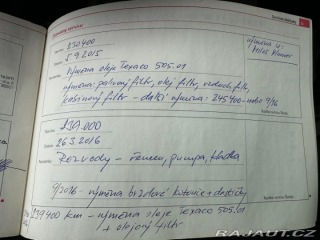 230400
5.9.2015
výměna oleje Texaco 505.01
výměna: palivový filtr, olej. filtr, vzduch. filtr,
kabinový filtr – další výměna: 245400 nebo 9/16
výměna u:
239.000
26.3.2016
Rozvody – řemen, pumpa, kladka
9/2016 - výměna brzdové kotouče + destičky
239400 km - výměna oleje Texaco 505.01
+ olejový filtr
BAZAUT.CZ